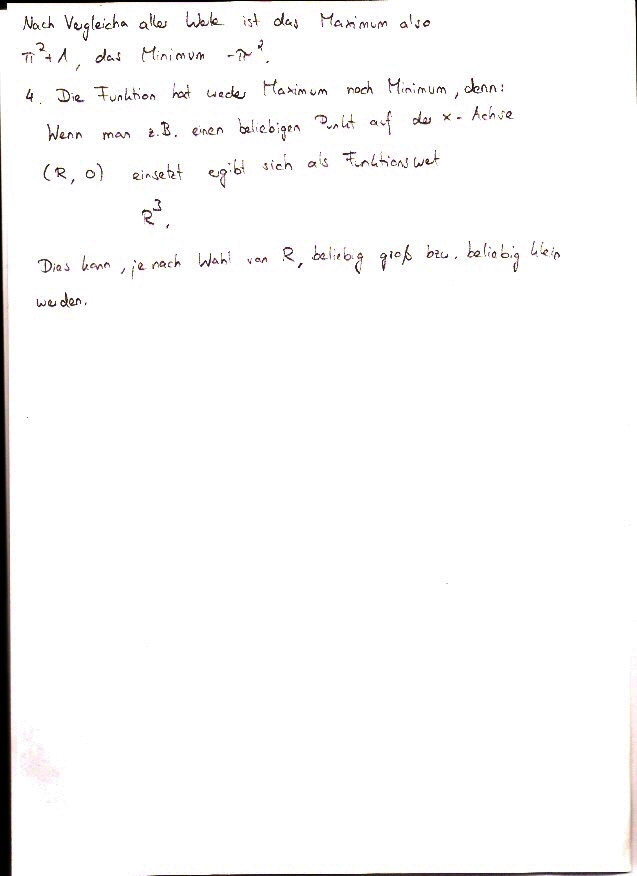 Nach Vergleicha aller Werte ist das Maximum also
π²+1, das Minimum -π².
4. Die Funktion hat weder Maximum noch Minimum, denn:
Wenn man z.B. einen beliebigen Punkt auf der x-Achse
(R, 0) einsetzt ergibt sich als Funktionswert
R³.
Dies kann, je nach Wahl von R, beliebig groß bzw. beliebig klein
werden.